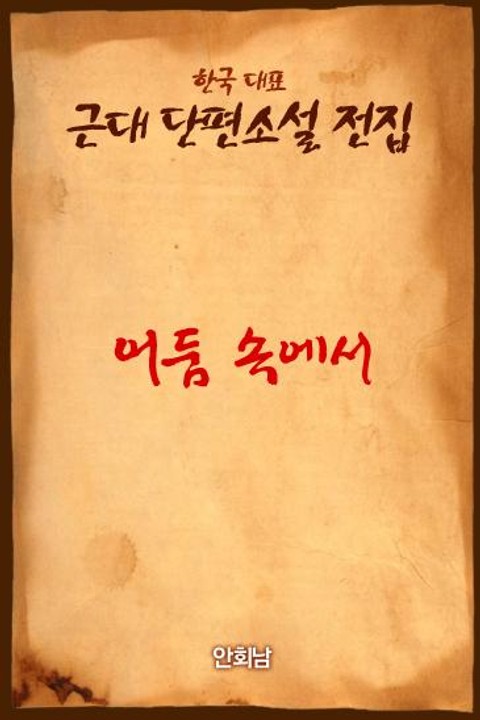 한국 대표
근대 단편소설 전집
어둠 속에서
안회남